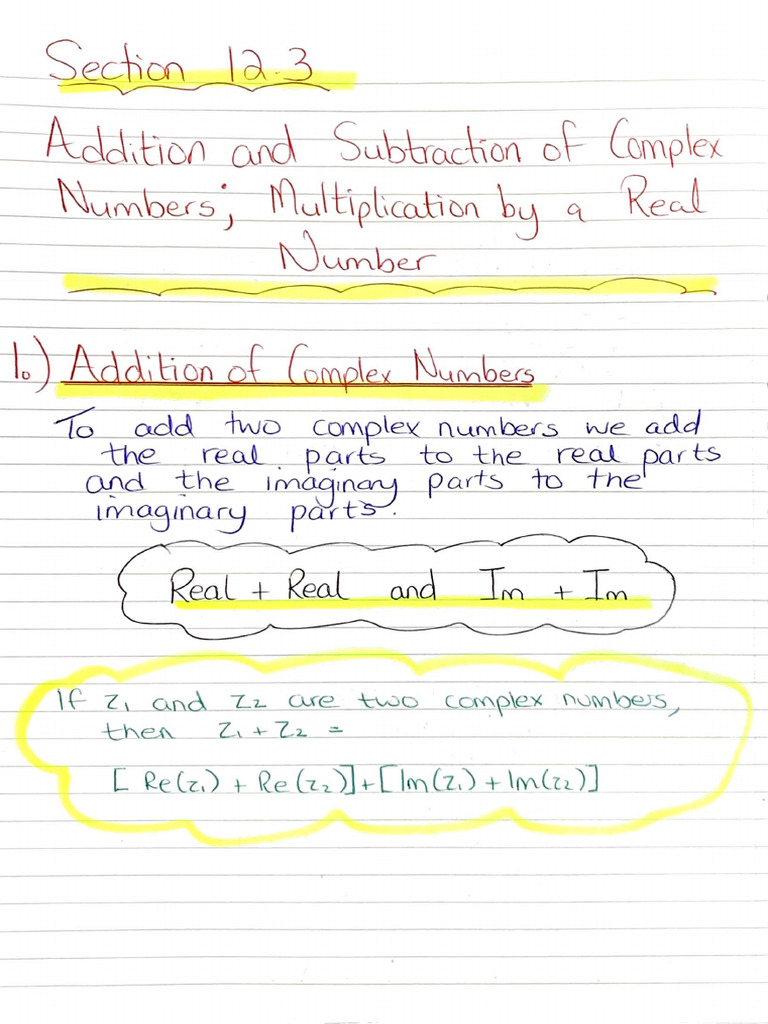 Section 12.3
Addition and Subtraction of Complex
Numbers; Multiplication by a Real
Number
1.) Addition of Complex Numbers
To add two complex numbers we add
the real parts to the real parts
and the imaginary parts to the
imaginary parts.
Real + Real and Im + Im
If z₁ and z₂ are two complex numbers,
then z₁ + z₂ =
[ Re(z₁) + Re(z₂)] + [Im(z₁) + Im(z₂)]